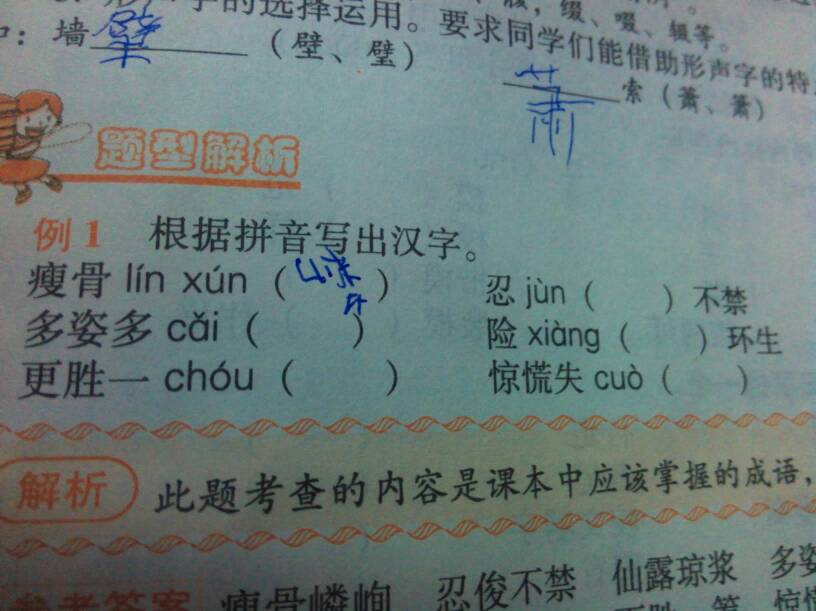 字的选择运用。要求同学们能借助形声字的特
缀、啜、辍等。
墙 （壁、璧）
萧 索（萧、箫）
题型解析
例1 根据拼音写出汉字。
瘦骨 lín xún（嶙 ） 忍 jùn（ ）不禁
多姿多 cǎi（ ） 险 xiàng（ ）环生
更胜一 chóu（ ） 惊慌失 cuò（ ）
解析 此题考查的内容是课本中应该掌握的成语，
参考答案 瘦骨嶙峋 忍俊不禁 仙露琼浆 多姿